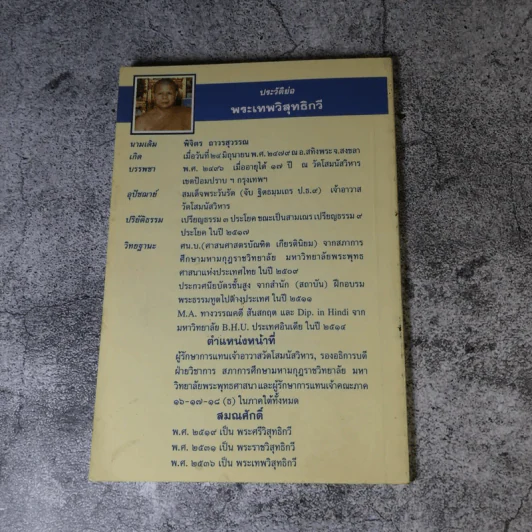 ประวัติย่อ
พระเทพวิสุทธิกวี
นามเดิม พิจิตร ถาวรสุวรรณ
เกิด เมื่อวันที่ ๒๔ มิถุนายน พ.ศ. ๒๔๗๙ ณ อ.สทิงพระ จ.สงขลา
บรรพชา พ.ศ. ๒๔๙๖ เมื่ออายุได้ ๑๗ ปี ณ วัดโสมนัสวิหาร
เขตป้อมปราบ ฯ กรุงเทพฯ
อุปัชฌาย์ สมเด็จพระวันรัต (จับ ฐิตธมฺมเถร ป.ธ.๙) เจ้าอาวาส
วัดโสมนัสวิหาร
ปริยัติธรรม เปรียญธรรม ๓ ประโยค ขณะเป็นสามเณร เปรียญธรรม ๙
ประโยค ในปี ๒๕๑๗
วิทยฐานะ ศน.บ.(ศาสนศาสตรบัณฑิต เกียรตินิยม) จากสภาการ
ศึกษามหามกุฎราชวิทยาลัย มหาวิทยาลัยพระพุทธ
ศาสนาแห่งประเทศไทย ในปี ๒๕๐๙
ประกาศนียบัตรชั้นสูง จากสำนัก (สถาบัน) ฝึกอบรม
พระธรรมทูตไปต่างประเทศ ในปี ๒๕๑๑
M.A. ทางวรรณคดี สันสกฤต และ Dip. in Hindi จาก
มหาวิทยาลัย B.H.U. ประเทศอินเดีย ในปี ๒๕๑๔
ตำแหน่งหน้าที่
ผู้รักษาการแทนเจ้าอาวาสวัดโสมนัสวิหาร, รองอธิการบดี
ฝ่ายวิชาการ สภาการศึกษามหามกุฎราชวิทยาลัย มหา
วิทยาลัยพระพุทธศาสนา และผู้รักษาการแทนเจ้าคณะภาค
๑๖-๑๗-๑๘ (ธ) ในภาคใต้ทั้งหมด
สมณศักดิ์
พ.ศ. ๒๕๑๙ เป็น พระศรีวิสุทธิกวี
พ.ศ. ๒๕๓๑ เป็น พระราชวิสุทธิกวี
พ.ศ. ๒๕๓๖ เป็น พระเทพวิสุทธิกวี